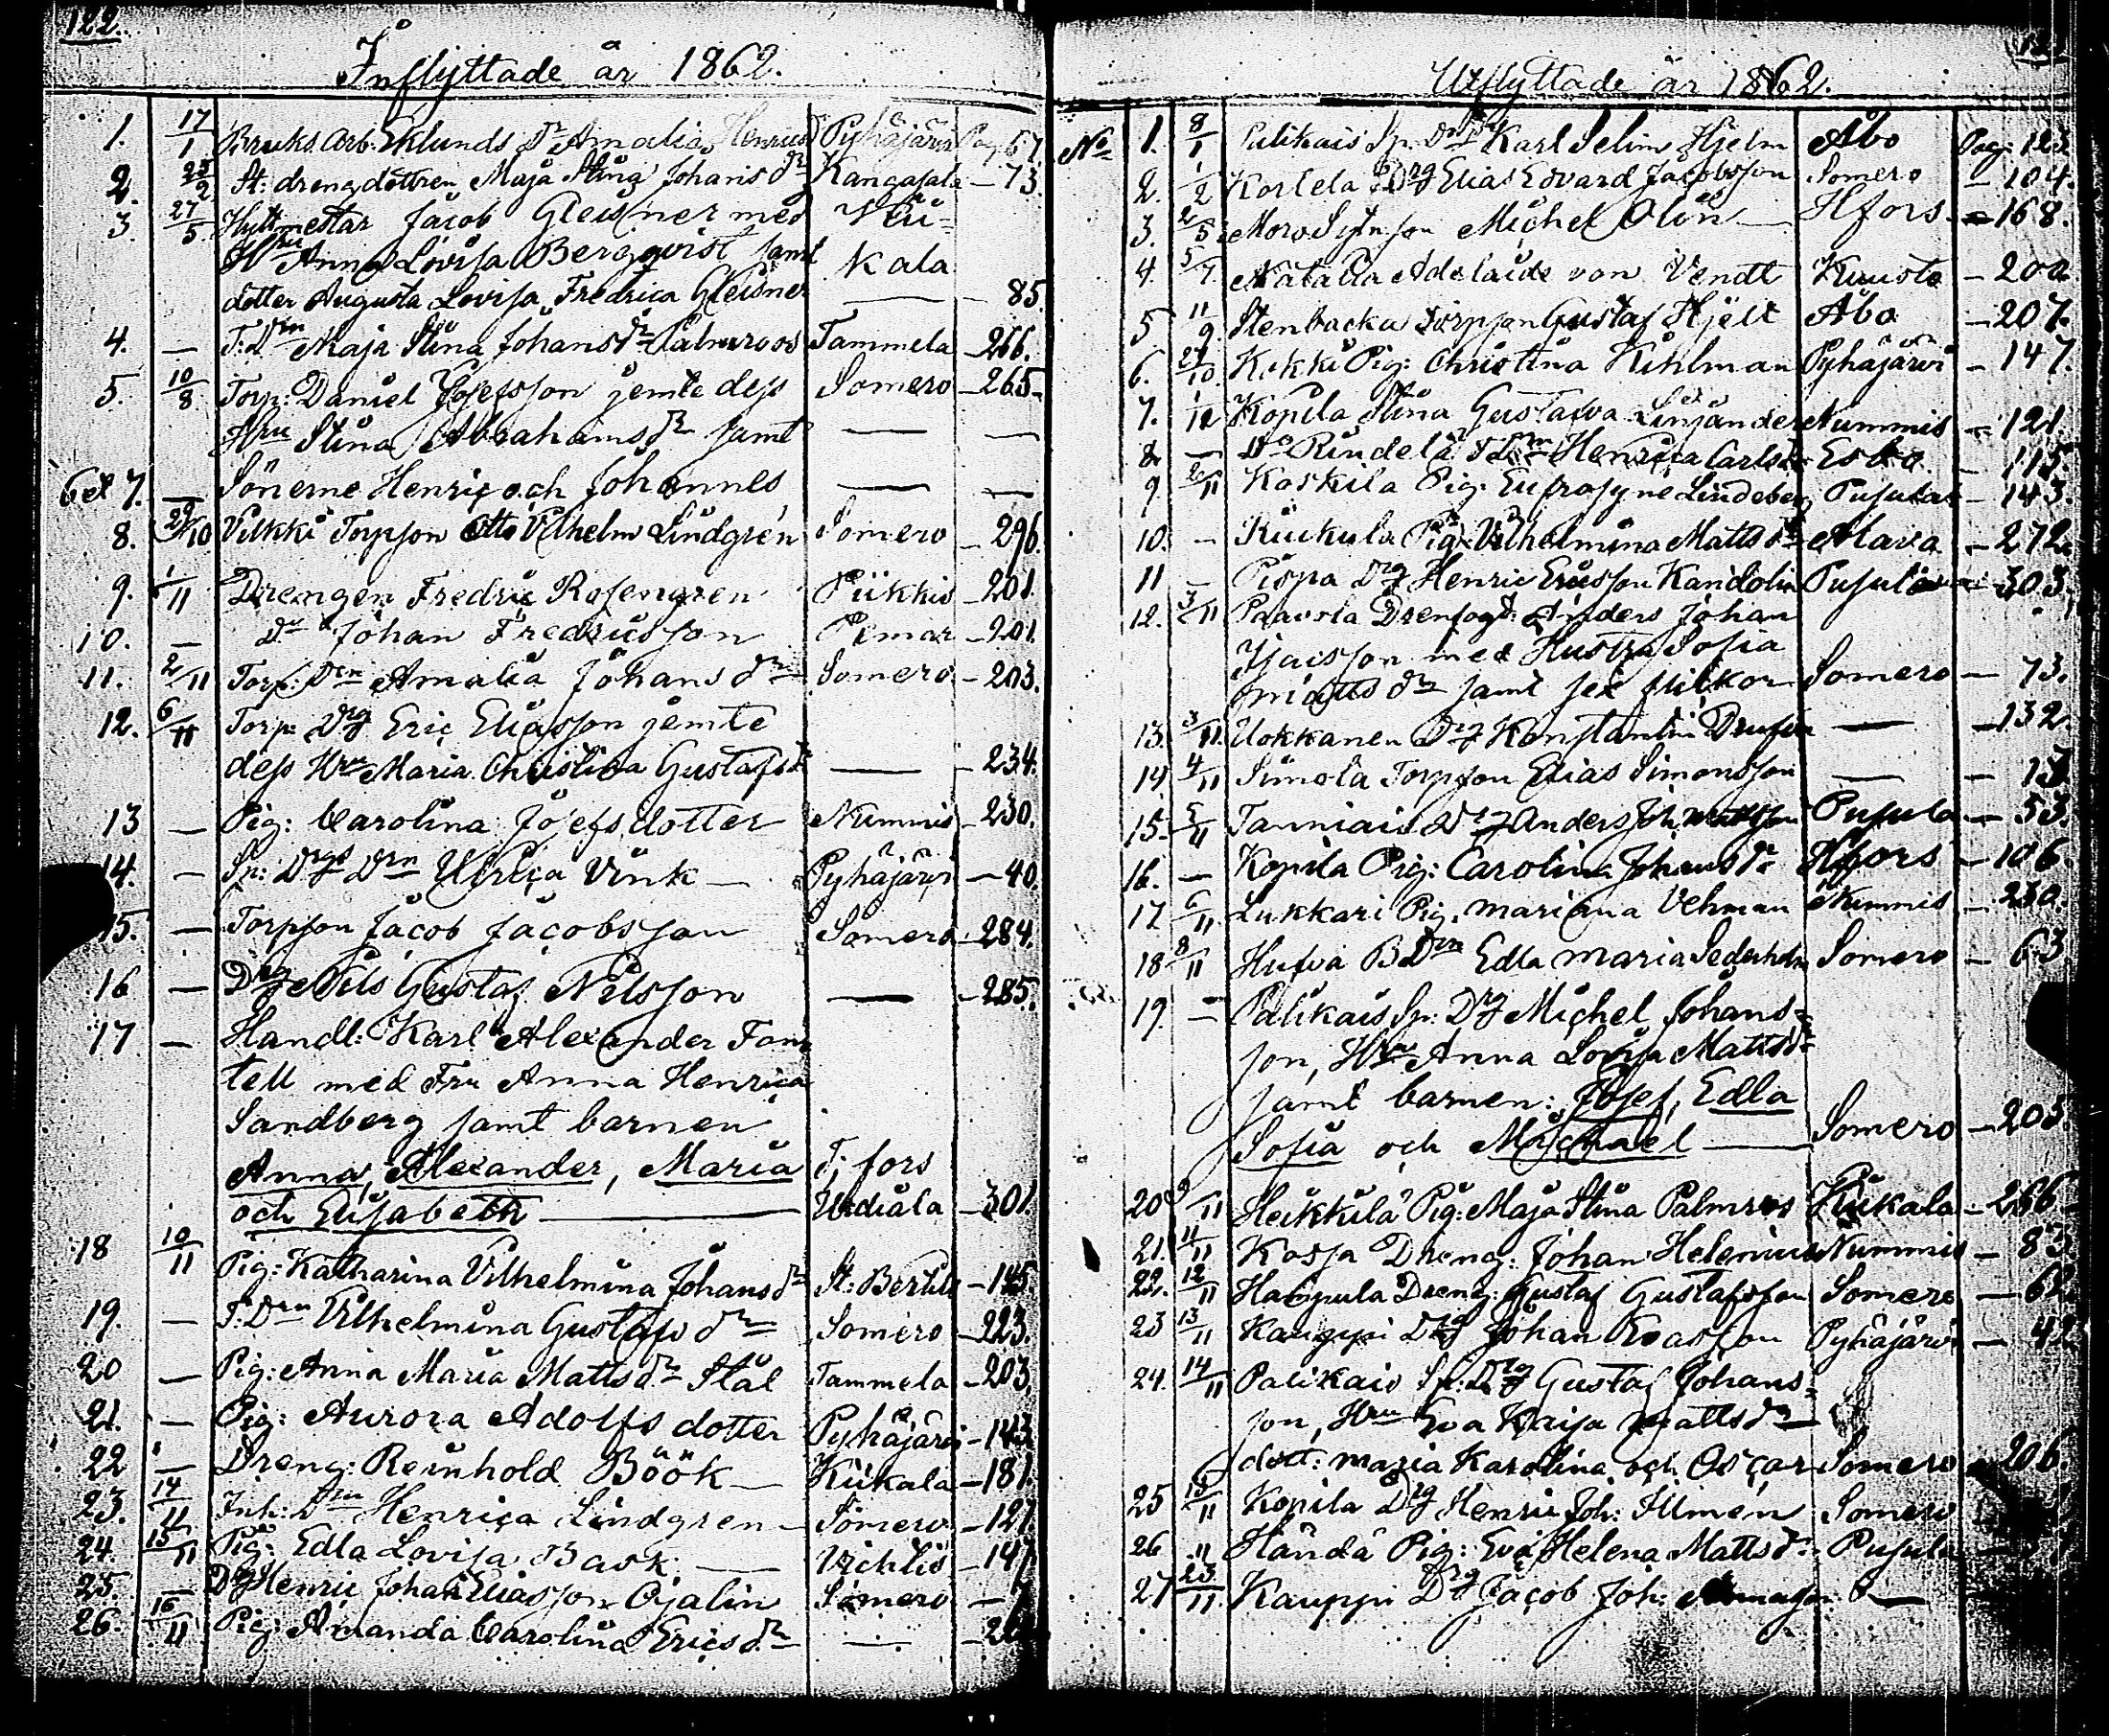 122.
Inflyttade år 1862.
1. 17/1 Bruks Arb: Eklunds Dr Amalia Henricsd Pyhäjärvi Pag 67.
2. 25/2 St: drengdottren Maja Stina Johans dr Kangasala – 73.
3. 27/5 Hyttmestar Jacob Gleisner med Kii-
Hru Anna Lovisa Bergqvist samt kala
dotter Augusta Lovisa Fredrica Gleisner — – 85
4. — T: Drn Maja Stina Johans dr Palmroos Tammela – 266.
5. 10/8 Torp: Daniel Josefsson jemte dess Somero – 265.
Hru Stina Abrahams dr samt — —
6 et 7. — Sönerne Henric och Johannes — —
8. 29/10 Vilkki Torpson Otto Vilhelm Lindgrén Somero – 296.
9. 1/11 Drengen Fredric Rosengren Piikkis – 201.
10. — Johan Fredricsson Pemar – 201.
11. 2/11 Torp: Drn Amalia Johans dr Somero – 203.
12. 6/11 Torp: Drg Eric Eliasson jemte
dess Hru Maria Christina Gustafs dr — – 234.
13 — Pig: Carolina Josefsdotter Nummis – 230.
14. — Sp: Drgs Drn Ulrica Vink — Pyhäjärvi – 40.
15. — Torpson Jacob Jacobsson Somero – 284.
16 — Drg Nils Gustaf Nilsson — – 285.
17 — Handl: Karl Alexander Fon
tell med Fru Anna Henrica
Sandberg samt barnen
Anna, Alexander, Maria T: fors
och Elisabeth — Urdiala – 301.
18 10/11 Pig: Katharina Vilhelmina Johans dr St: Bertils – 145.
19. — T: Drn Vilhelmina Gustafs dr Somero – 223.
20 — Pig: Anna Maria Matts dr Stål Tammela – 203.
21. — Pig: Aurora Adolfs dotter Pyhäjärvi – 143
22 — Dreng: Reinhold Böök — Kiikala – 181.
23. 14/11 Inh: Drn Henrica Lindgren – Somero – 121
24. 15/11 Pig: Edla Lovisa Back — Vichtis – 147
25. — Drg Henric Johan Eliasson Ojalin Somero –
26. 16/11 Pig: Amanda Carolina Erics dr — –
Utflyttade år 1862.
No 1. 8/1 Palikais Sp: Karl Selim Hjelm Åbo Pag: 123
2. 1/2 Korlela Drg Elias Edvard Jacobsson Somero – 104.
3. 2/5 Moro Sytn: son Michel Olin — Hfors – 168.
4. 5/7. Natalia Adelaide von Vendt Kuusto – 202
5 11/9. Stenbacka torpson Gustaf Hjelt Åbo – 207.
6. 27/10. Kekki Pig: Christina Kihlman Pyhäjärvi – 147.
7. 1/11 Kopila Stina Gustafva Linjander Nummis – 121.
8. — Do Rindelä T: Drn Henrica Carls dr Esbo – 115.
9 2/11 Koskila Pig: Eufrosyne Lindeberg Pusula – 143.
10. — Kiukula Pig: Vilhelmina Matts dr Alava – 272.
11 — Pispa Drg Henric Ericsson Kandolin Pusula – 303.
12. 3/11 Paavola Drenfogd: Anders Johan
Isacsson med Hustru Sofia
Matts dr samt sex flickor Somero – 73.
13. 3/11. Uokkanen Drg Konstantin — – 132
14 4/11 Simola Torpson Elias Simonsson — –
15. 5/11 Tanniais Drg Anders Joh: Mattsson Pusula – 53.
16. — Kopila Pig: Carolina Johans dr Hfors – 106.
17 6/11. Lukkari Pig. Mariana Vehman Nummis – 230.
18 8/11 Hufva B Drn Edla Maria Sederholm Somero – 63
19. — Palikais Sp: Drg Michel Johans=
son, Hru Anna Lovisa Matts dr
samt barnen: Josef, Edla
Sofia och Michael — Somero – 205.
20 9/11 Heikkilä Pig: Maja Stina Palmroos Kiikala – 266
21. 11/11 Kosja Dreng: Johan Helenius Nummis – 83.
22. 12/11 Haupula Dreng: Gustaf Gustafsson Somero – 62
23 13/11 Kauppi Drg Johan Evasson Pyhäjärvi – 42
24. 14/11 Palikais Sp: Drg Gustaf Johans=
son, Hru Eva Kaisa Matts dr
dott: Maria Karolina och Oscar Somero 206.
25 15/11 Kopila Drg Henric Joh: Ilmén Somero
26 11 Händä Pig: Eva Helena Matts dr Pusula
27 23/11. Kauppi Drg Jacob Joh: